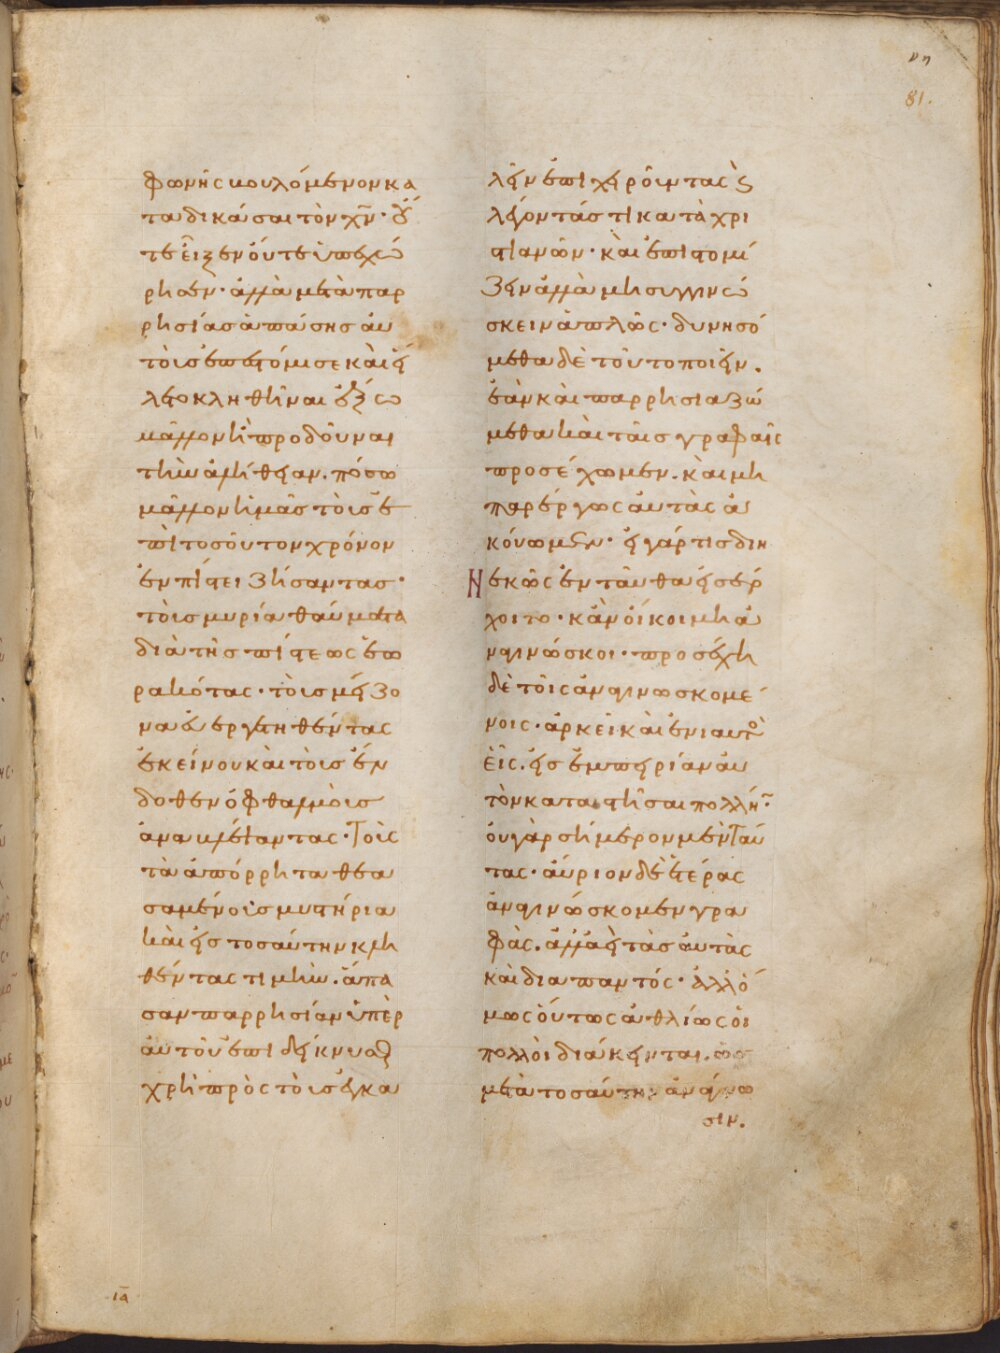 νη
81.
φωνῆς καὶ βουλόμενον κα
ταδικάσαι τὸν χν̄· οὔ
τε εἶξεν οὔτε ὑπεχώ
ρησεν· ἀλλὰ μετὰ παρ
ρησίας ἁπάσης αὐ
τοὺς ἐπεστόμισε καὶ εἵ
λετο κληθῆναι ἔξω
μᾶλλον ἢ προδοῦναι
τὴν ἀλήθειαν. πόσω
μᾶλλον ἡμᾶς τοὺς ἐ
πὶ τοσοῦτον χρόνον
ἐν πίστει ζήσαντας·
τοὺς μυρία θαύματα
διὰ τῆς πίστεως ἑω
ρακότας· τοὺς μείζο
να εὐεργετηθέντας
ἐκείνου καὶ τοὺς ἔν
δοθεν ὀφθαλμοὺς
ἀναβλέψαντας· τοὺς
τὰ ἀπόρρητα θεα
σαμένους μυστήρια
καὶ εἰς τοσαύτην κλη
θέντας τιμὴν. ἅπα
σαν παρρησίαν ὑπὲρ
αὐτοῦ ἐπιδείκνυσθ
χρὴ πρὸς τοὺς ἐγκα
λεῖν ἐπιχειροῦντας ϗ
λέγοντάς τι κατὰ χρι
στιανῶν· καὶ ἐπιστομί
ζειν ἀλλὰ μὴ συγγινώ
σκειν ἁπλῶς· δυνησό
μεθα δὲ τοῦτο ποιεῖν.
ἐὰν καὶ παρρησιαζώ
μεθα καὶ ταῖς γραφαῖς
προσέχωμεν. καὶ μὴ
παρέργως αὐτὰς ἀ
κούωμεν· εἰ γάρ τις διη
νεκῶς ἐνταῦθα εἰσέρ
χοιτο· κἂν οἴκοι μὴ ἀ
ναγινώσκοι· προσέχη
δὲ τοῖς ἀναγινωσκομέ
νοις· ἀρκεῖ καὶ ἐνιαυτὸ
εἷς. εἰς ἐμπειρίαν αὐ
τὸν καταστῆσαι πολλήν·
οὐ γὰρ σήμερον μὲν ταύ
τας· αὔριον δὲ ἑτέρας
ἀναγινώσκομεν γρα
φάς. ἀλλ' ἀεὶ τὰς αὐτὰς
καὶ διαπαντός· ἀλλ' ὅ
μως οὕτως ἀθλίως οἱ
πολλοὶ διάκεινται. ὡς
μετὰ τοσαύτην ἀνάγνω
σιν.
ια